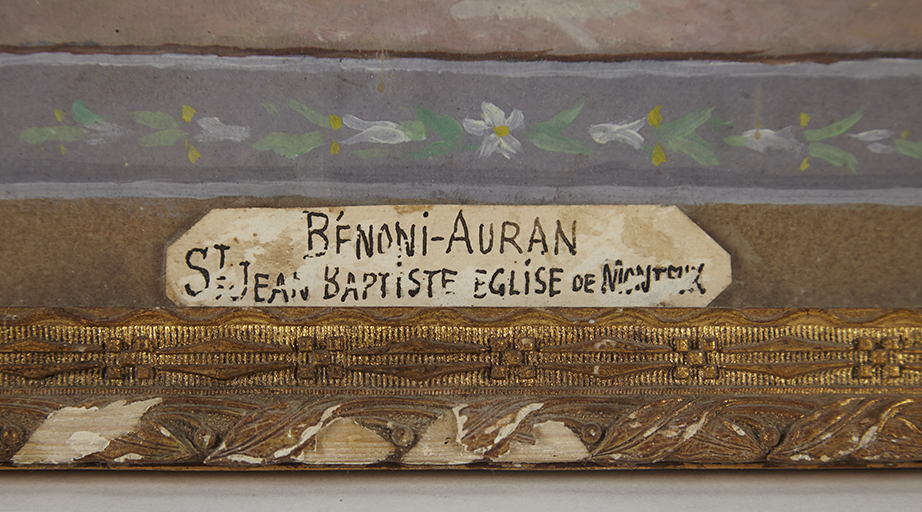 BÉNONI-AURAN
ST JEAN BAPTISTE EGLISE DE MONTEUX